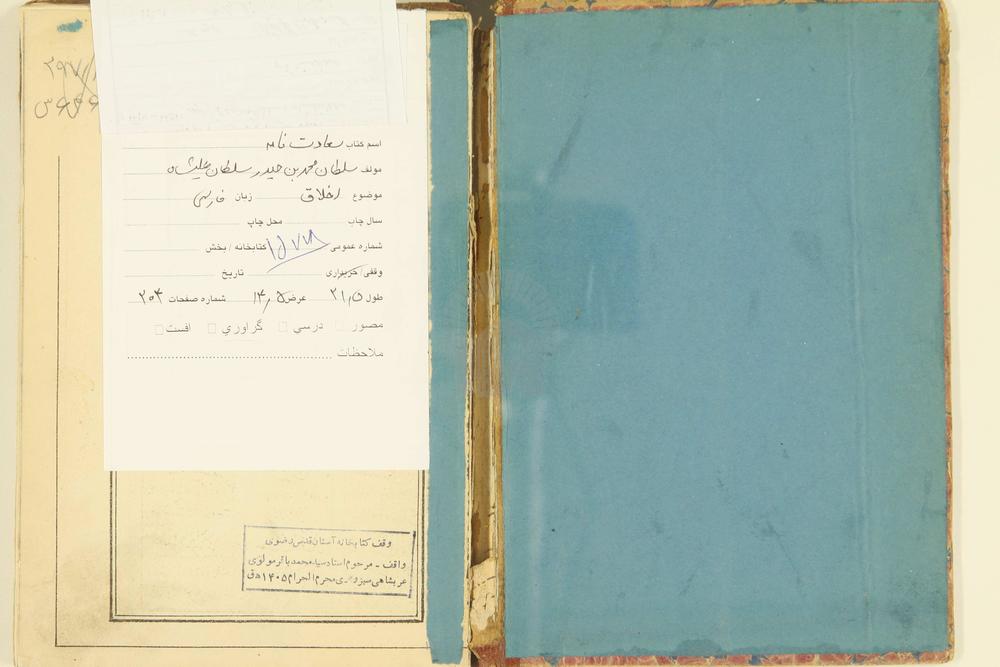 اسم کتاب سعادت نامه
مولف سلطان محمد بن حیدر سلطان علیشاه
موضوع اخلاق زبان فارسی
سال چاپ محل چاپ
شماره عمومی ۱۵۷۷۸ کتابخانه / بخش
وقفی/خریداری تاریخ
طول ۲۱٫۵ عرض ۱۴٫۵ شماره صفحات ۲۰۴
مصور □ درسی □ گراوری □ افست □
ملاحظات
وقف کتابخانه آستان قدس رضوی
واقف - مرحوم استاد سید محمد باقر مولوی
عربشاهی سبزواری محرم الحرام ۱۴۰۵ ه‍ ق